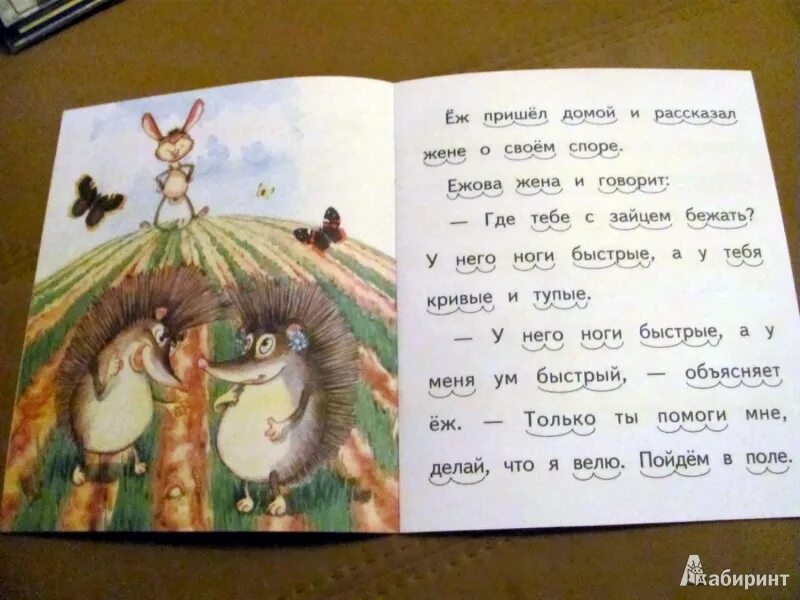 Ёж пришёл домой и рассказал
жене о своём споре.
Ежова жена и говорит:
— Где тебе с зайцем бежать?
У него ноги быстрые, а у тебя
кривые и тупые.
— У него ноги быстрые, а у
меня ум быстрый, — объясняет
ёж. — Только ты помоги мне,
делай, что я велю. Пойдём в поле.
Лабиринт